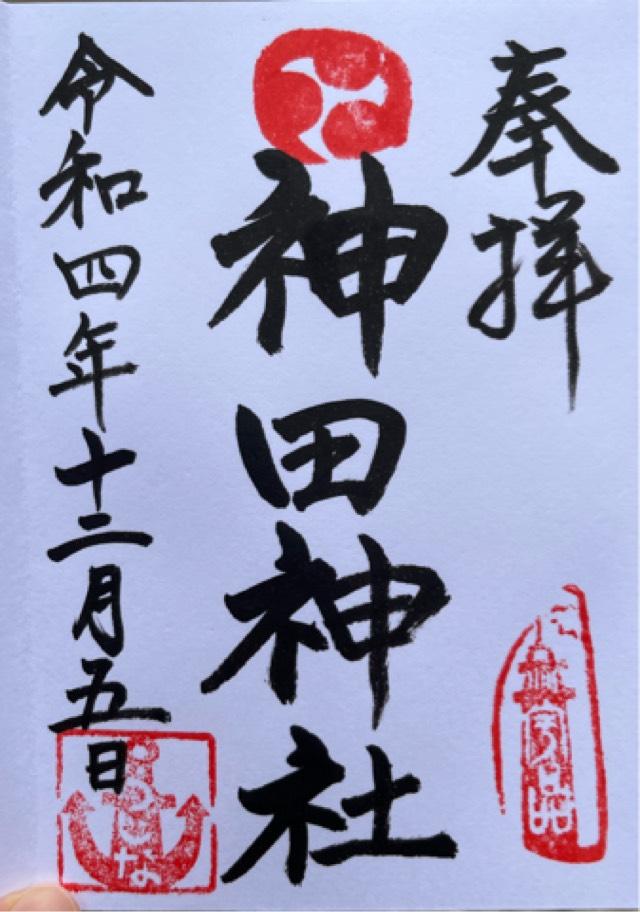 奉拝
神田神社
令和四年十二月五日